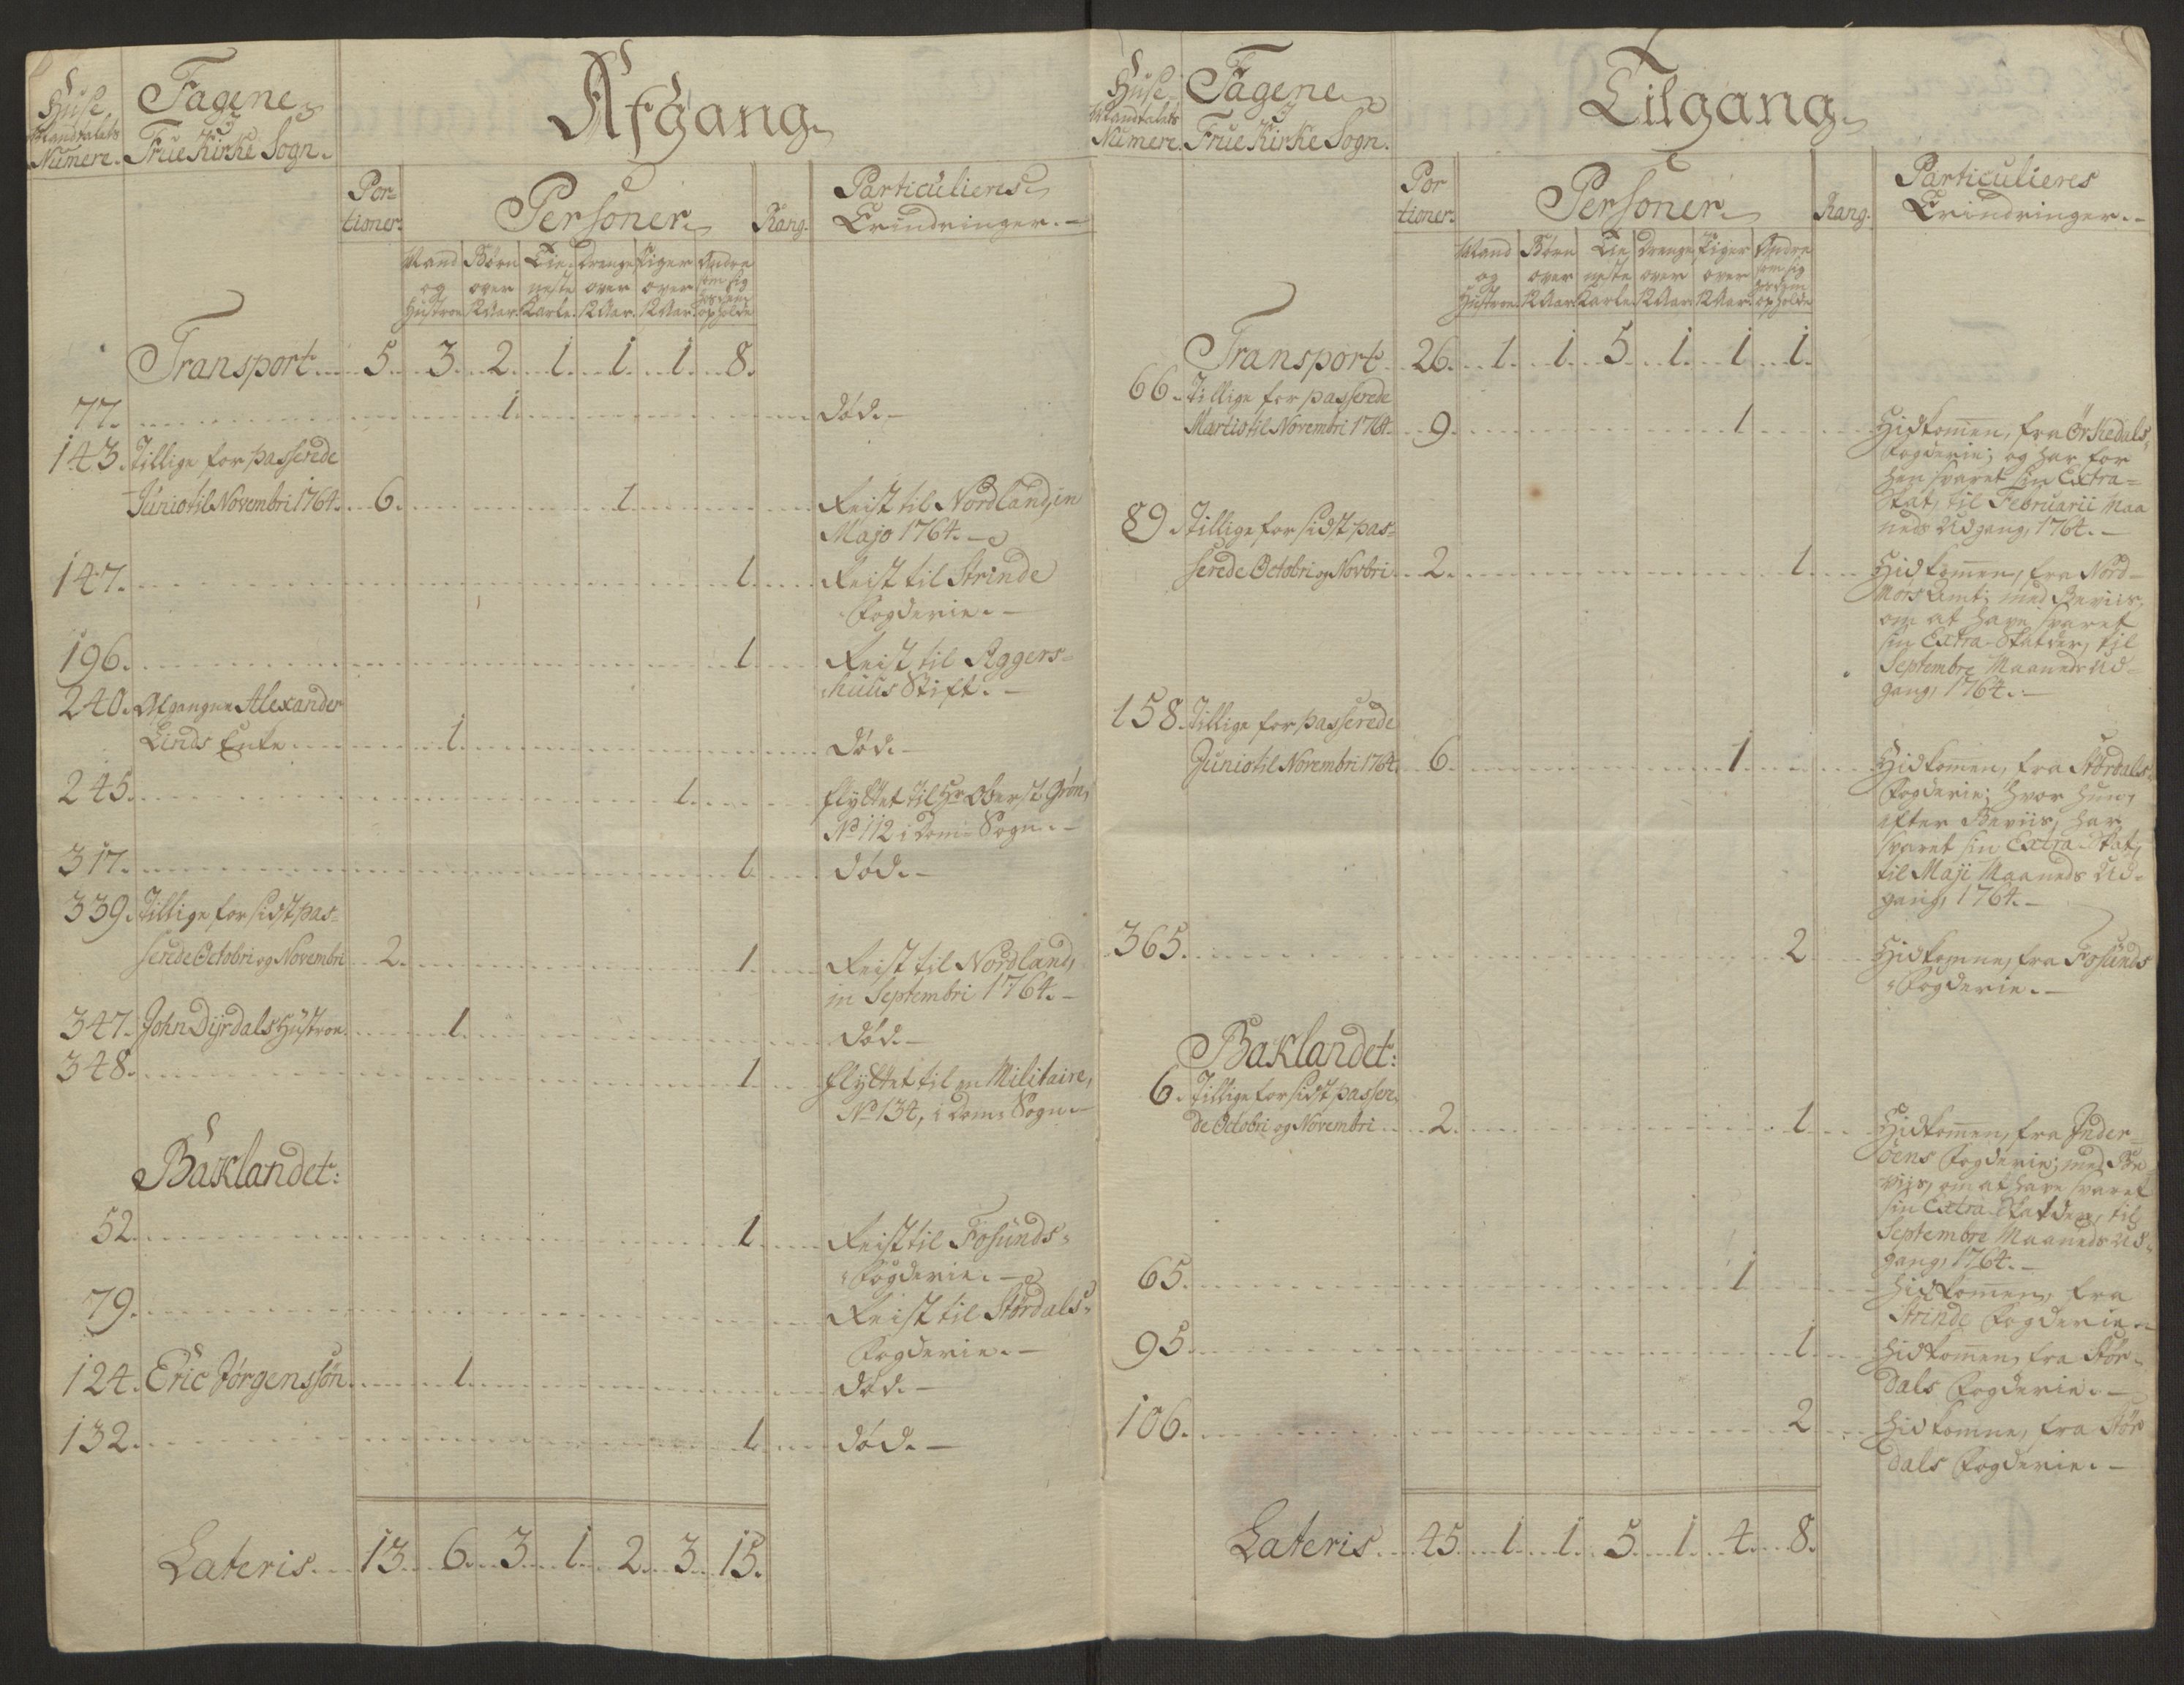 Huse
Mandtalets
Numere.
Tagene
i
Frue Kirke Sogn.
Afgang.
Por-
tioner.
Personer
Rang.
Particulieres
Erindringer. -
Mand og Hustroe
Børn over 12 Aar.
Tieneste Karle.
Drenge over 12 Aar.
Piger over 12 Aar.
Andre som sig hos dem opholde
Transport ... 5. 3. 2. 1. 1. 1. 8.
77. 1. død. -
143. Tillige for passerede
Junio til Novembri 1764. 6. 1. Reist til Nordland, in
Majo 1764. -
147. 1. Reist til Strinde
Fogderie. -
196. 1. Reist til Aggers-
huus Stift. -
240. Afgangne Alexander
Linds Enke 1. død. -
245. 1. flyttet til Hr Oberst Grøn,
No 112 i Dom Sogn. -
317. 1. død. -
339. Tillige for sidst pas-
serede Octobri og Novembri 2. 1. Reist til Nordland,
in Septembri 1764. -
347. John Dyrdals Hustroe 1. død. -
348. 1 flyttet til en Militaire,
No 134, i Dom Sogn. -
Baklandet:
52. 1. Reist til Fosunds-
Fogderie. -
79. Reist til Stördals-
Fogderie. -
124. Eric Jørgenssön 1. død. -
132. 1. død. -
Lateris. 13. 6. 3. 1. 2. 3. 15.
Huse
Mandtalets
Numere.
Tagene
i
Frue Kirke Sogn.
Tilgang.
Por
tioner.
Personer
Rang.
Particulieres
Erindringer. -
Mand og Hustroe.
Børn over 12 Aar.
Tieneste Karle.
Drenge over 12 Aar.
Piger over 12 Aar.
Andre som sig hos dem opholde
Transport. 26. 1. 1. 5. 1. 1. 1.
66. Tillige for passerede
Martio til Novembri 1764. 9. 1 Hidkommen, fra Örkedals
Fogderie; og har for
hen svaret sin Extra-
Skat, til Februarii Maa
neds Udgang, 1764. -
89. Tillige for sidst pas-
serede Octobri og Novbri 2. 1. Hidkommen, fra Nord-
Mors Amt; med Beviis,
om at have svaret
sin Extra-Skatter, til
Septembre Maaneds Ud-
gang, 1764. -
158. Tillige for passerede
Junio til Novembri 1764. 6. 1 Hidkommen, fra Stördals
Fogderie; hvor hun,
efter Beviis, har
svaret sin Extra Skat,
til Maji Maaneds Ud-
gang, 1764. -
365. 2 Hidkomne, fra Fosunds
Fogderie. -
Baklandet:
6. Tillige for sidst passere-
de Octobri og Novembri 2. 1. Hidkommen, fra Inder-
öens Fogderie; med Be
viis, om at have svaret
sin Extra Skatter, til
Septembre Maaneds Ud-
gang, 1764. -
65. 1 Hidkommen, fra
Strinde Fogderie. -
95. 1. Hidkommen, fra Stör-
dals Fogderie. -
106. 2 Hidkomne, fra Stör
dals Fogderie. -
Lateris. 45. 1. 1. 5. 1. 4. 8.